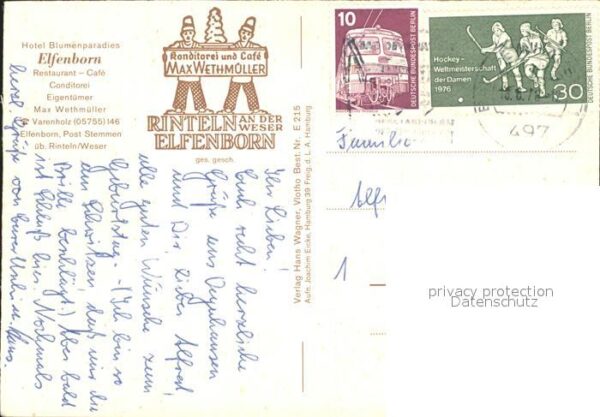 Hotel Blumenparadies
Elfenborn
Restaurant – Café
Conditorei
Eigentümer
Max Wethmüller
Varenholz (05755) 146
Elfenborn, Post Stemmen
üb. Rinteln/Weser
Konditorei und Café
MAX WETHMÜLLER
RINTELN AN DER WESER
ELFENBORN
ges. gesch.
Ihr Lieben!
Euch recht herzliche
Grüße aus
und Dir, lieber Alfred
alle guten Wünsche zum
Geburtstag. – (Ich bin so
am Schwitzen, daß mir die
Brille beschlägt.) Aber bald
ist Schluß hier. Nochmals
herzl. Grüße von
Verlag Hans Wagner, Vlotho Best. Nr. E 215
Aufn. Joachim Eicke, Hamburg 39 Freig. d. L. A. Hamburg
10
DEUTSCHE BUNDESPOST BERLIN
Hockey-
Weltmeisterschaft
der Damen
1976
30
DEUTSCHE BUNDESPOST BERLIN
497
Familie
Alf
1
privacy protection
Datenschutz